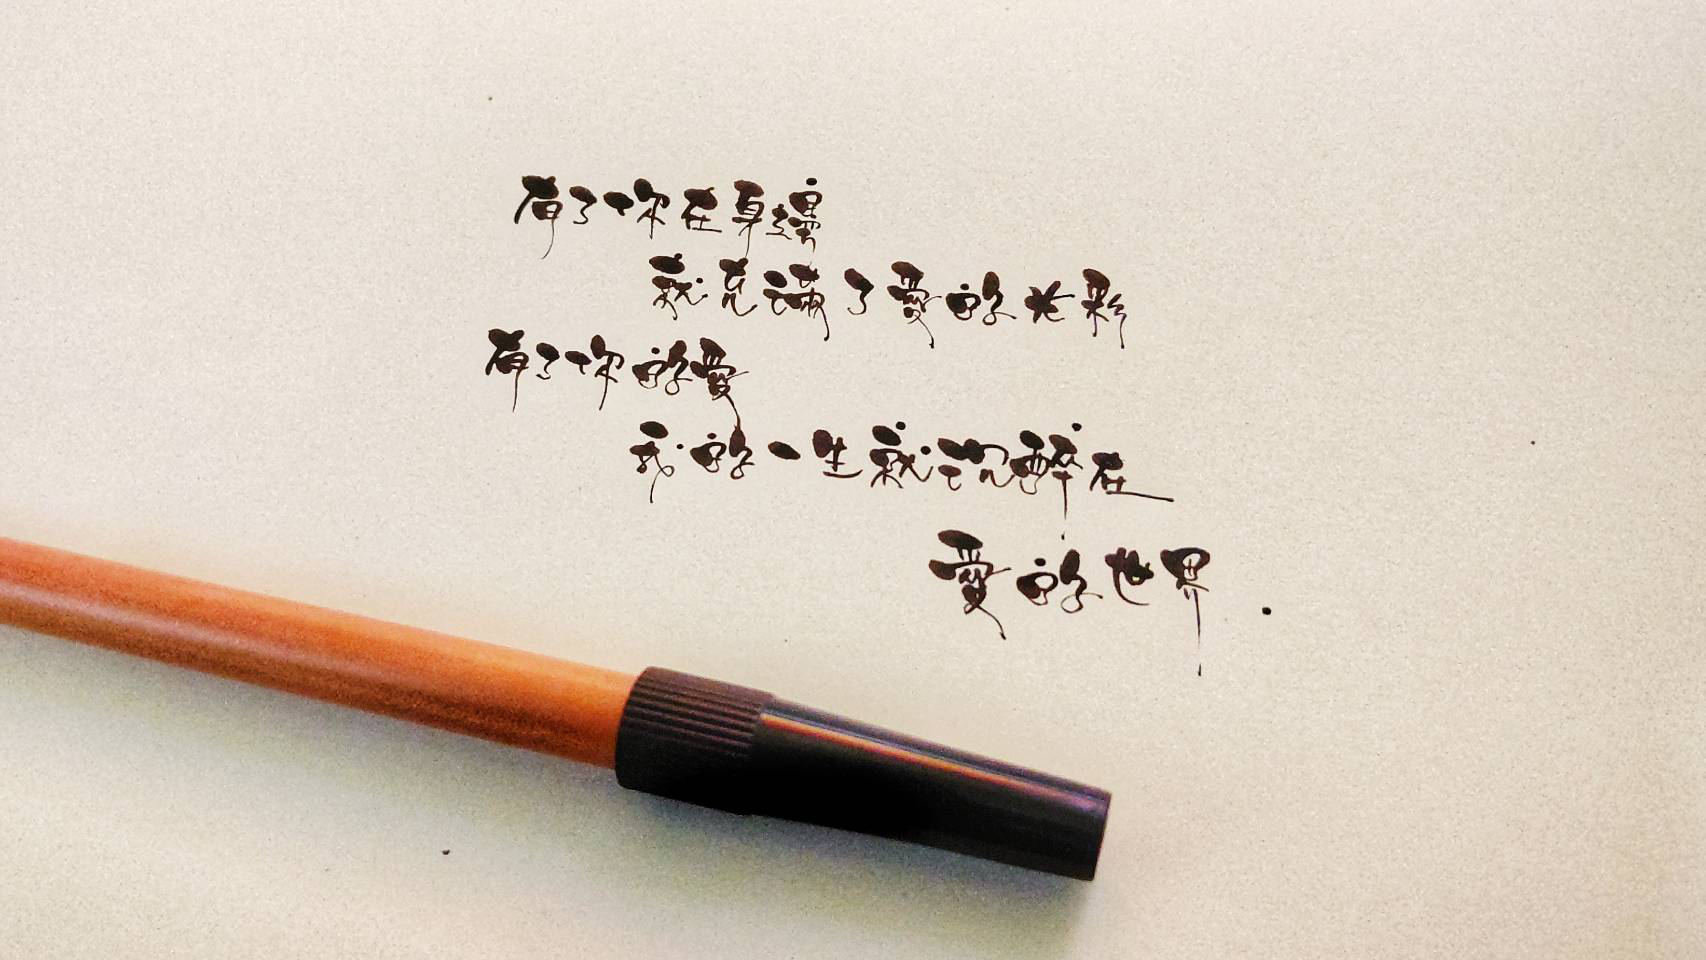 有了你在身邊
就充滿了愛的光彩
有了你的愛
我的一生就沉醉在
愛的世界